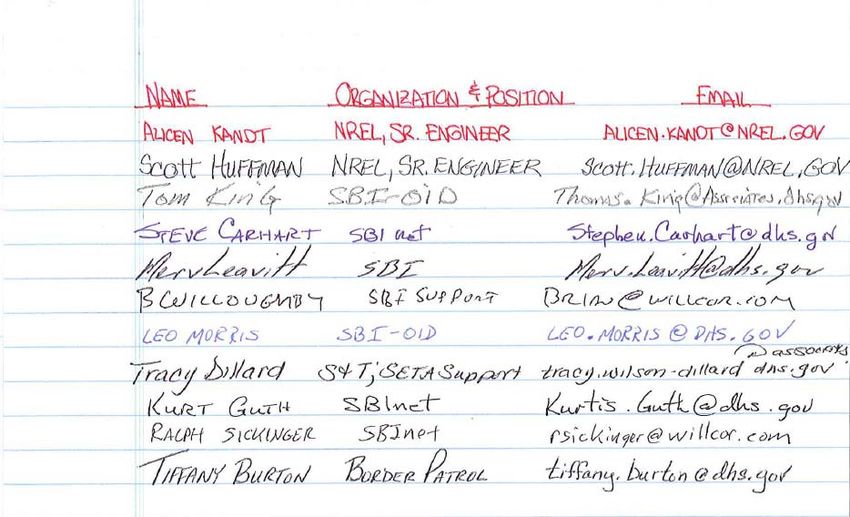 NAME ORGANIZATION & POSITION EMAIL
ALICEN KANDT NREL, SR. ENGINEER ALICEN.KANDT@NREL.GOV
Scott HUFFMAN NREL, SR. ENGINEER Scott.HUFFMAN@NREL.GOV
Tom King SBI-OID Thomas.King@Associates.dhs.gov
STEVE CARHART SBI net Stephen.Carhart@dhs.gov
Merv Leavitt SBI Merv.Leavitt@dhs.gov
B WILLOUGHBY SBI Support BRIAN@WILLCOR.COM
LEO MORRIS SBI-OID LEO.MORRIS@DHS.GOV
@associates
Tracy Dillard S&T; SETA Support tracy.wilson-dillard dhs.gov
KURT GUTH SBInet Kurtis.Guth@dhs.gov
RALPH SICKINGER SBInet rsickinger@willcor.com
TIFFANY BURTON BORDER PATROL tiffany.burton@dhs.gov